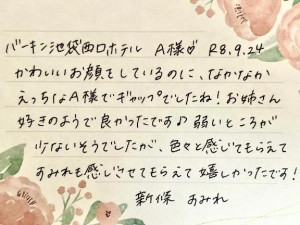 バーキン池袋西口ホテル A様♡ R8.9.24
かわいいお顔をしているのに、なかなか
えっちなA様でギャップでしたね！お姉さん
好きのようで良かったです♪ 弱いところが
少ないそうでしたが、色々と感じてもらえて
すみれも感じさせてもらえて嬉しかったです！
新條 すみれ